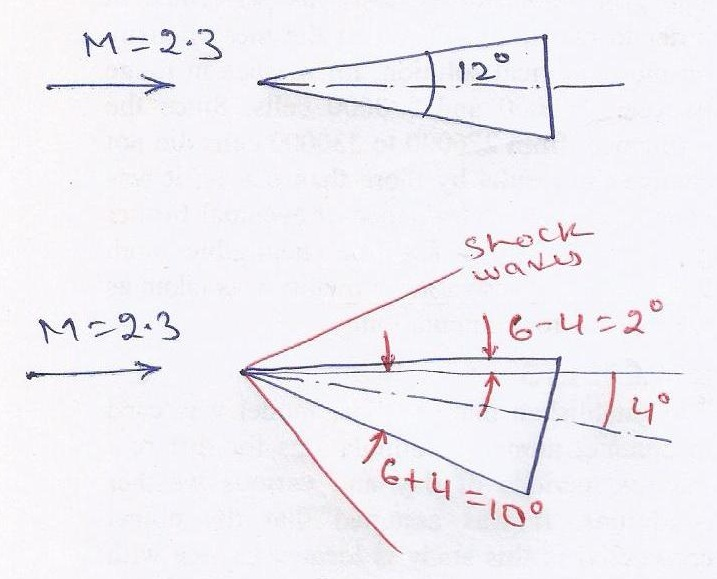 M=2.3
12°
shock
waves
M=2.3
6-4=2°
4°
6+4=10°